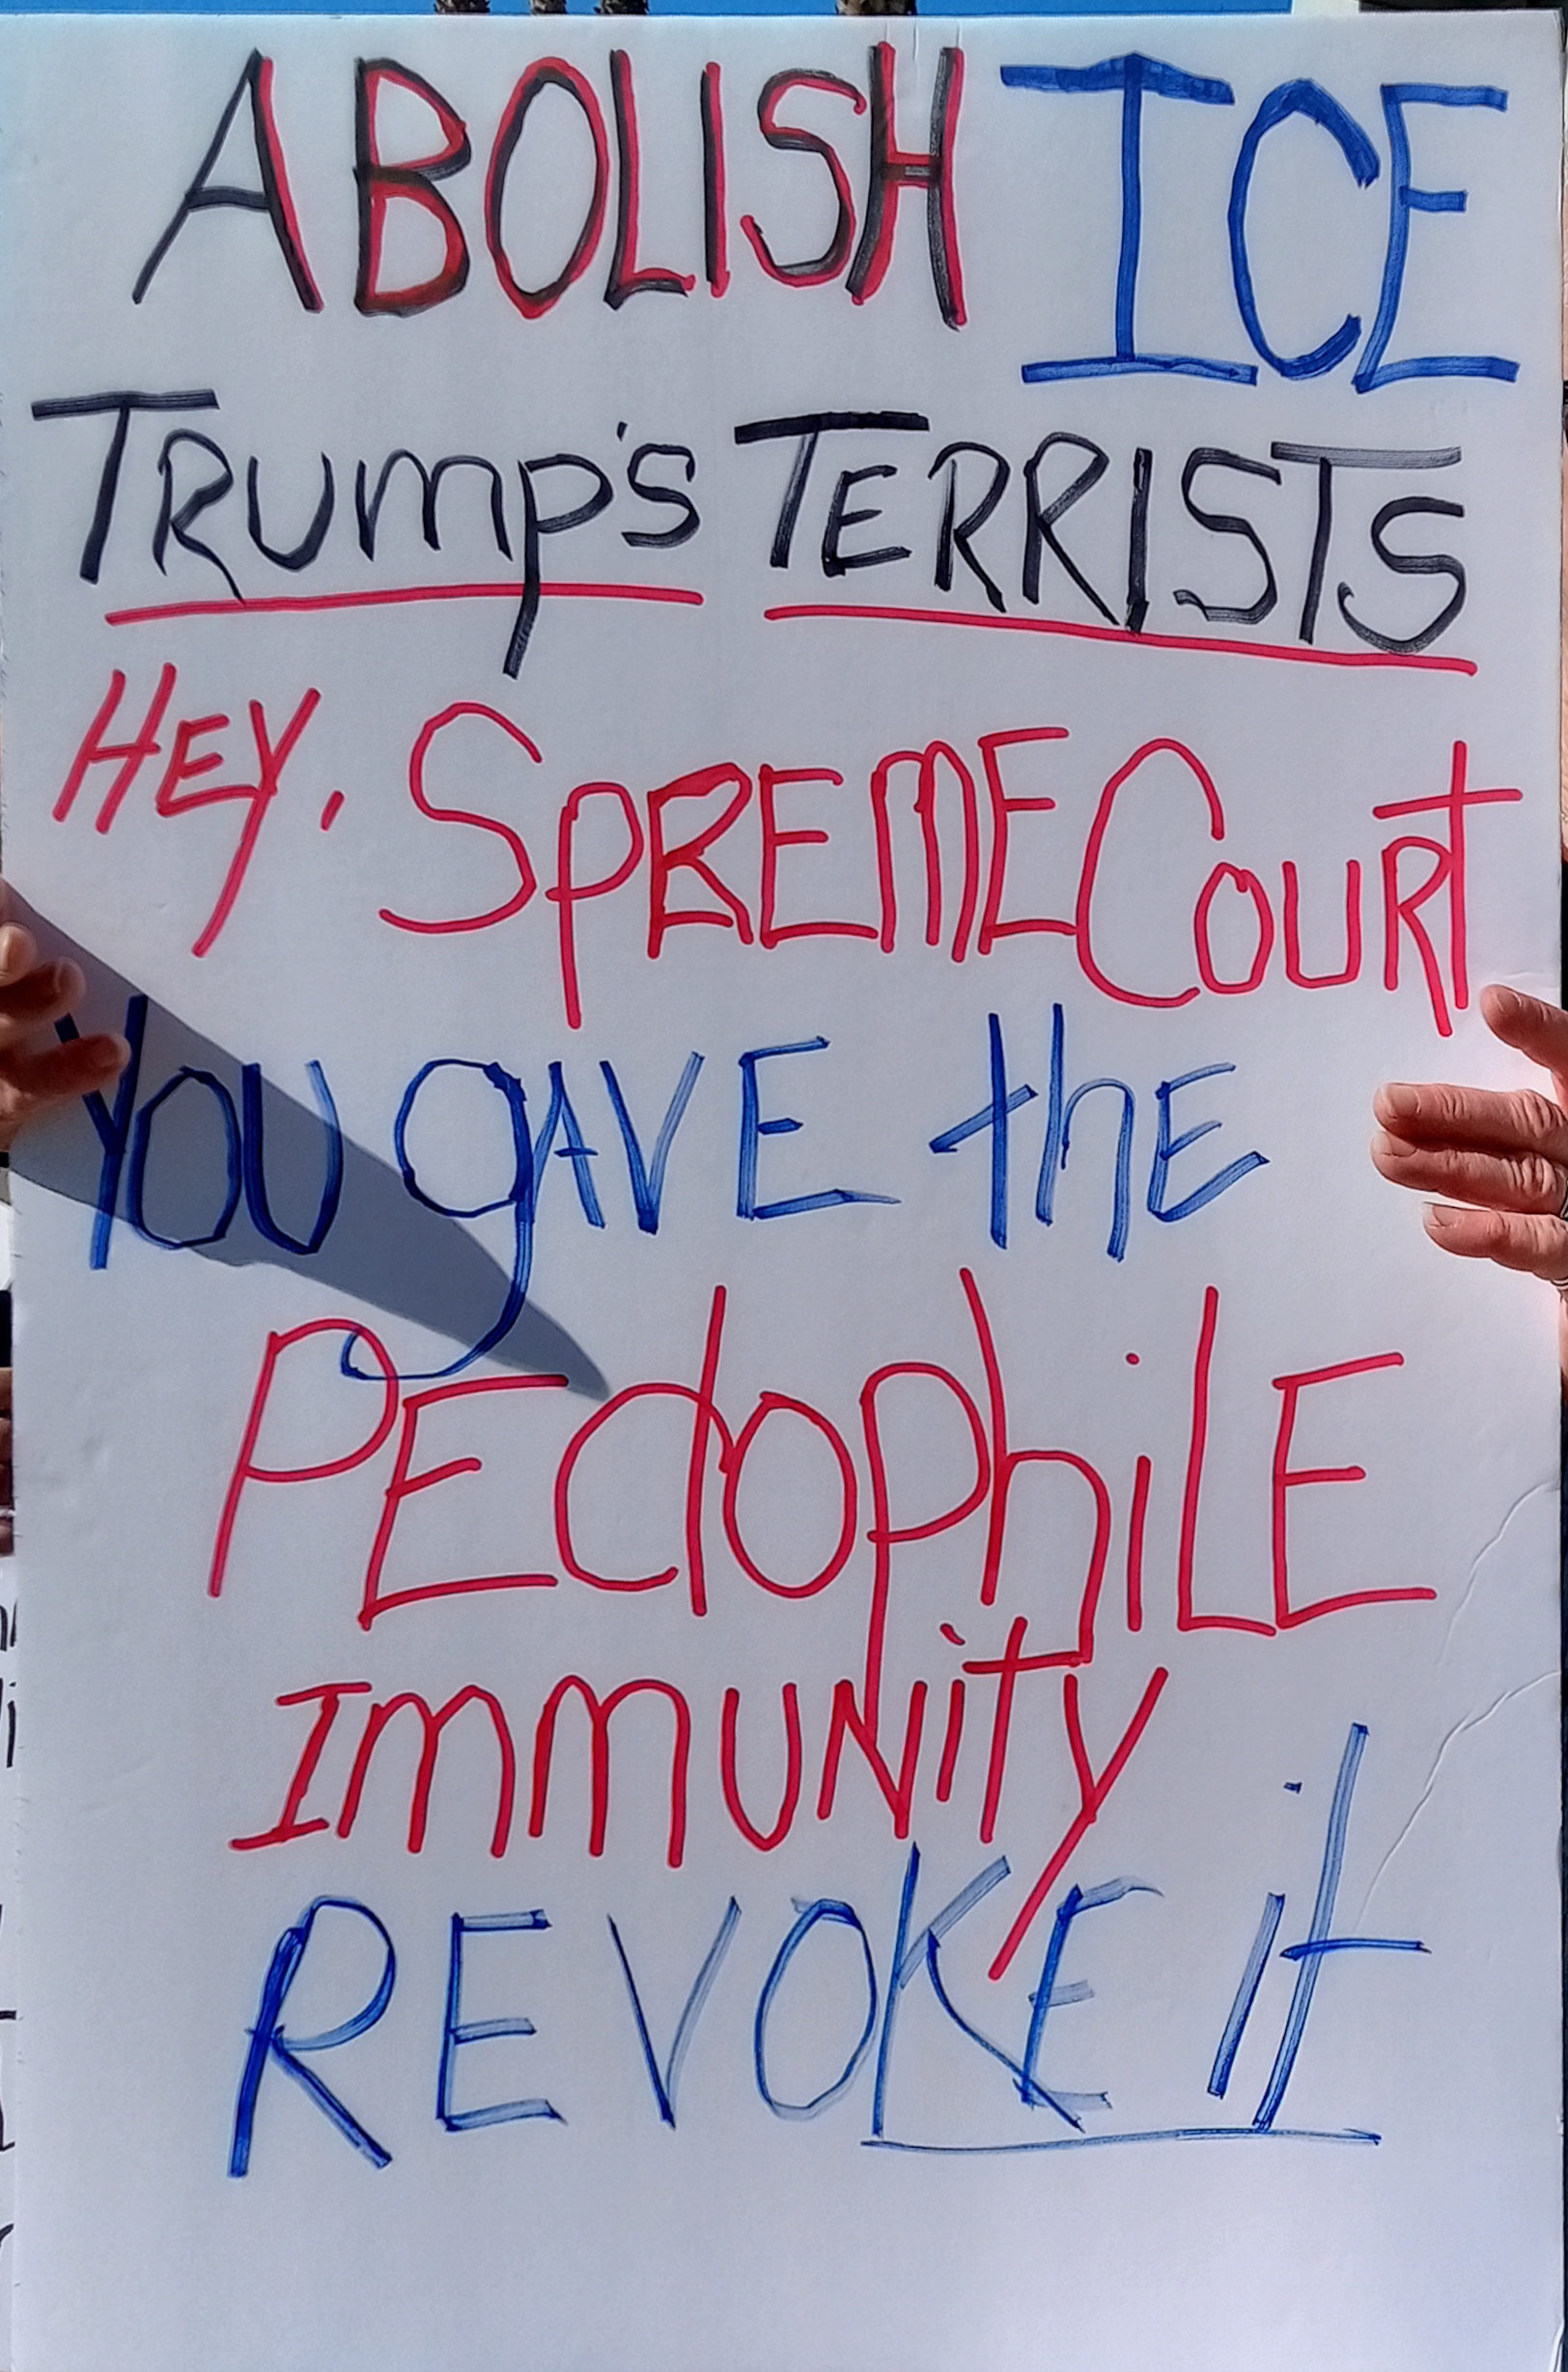 ABOLISH ICE
TRUMP'S TERRISTS
HEY, SPREME COURT
YOU gAVE thE
PEdophiLE
IMMUNity
REVOKE it